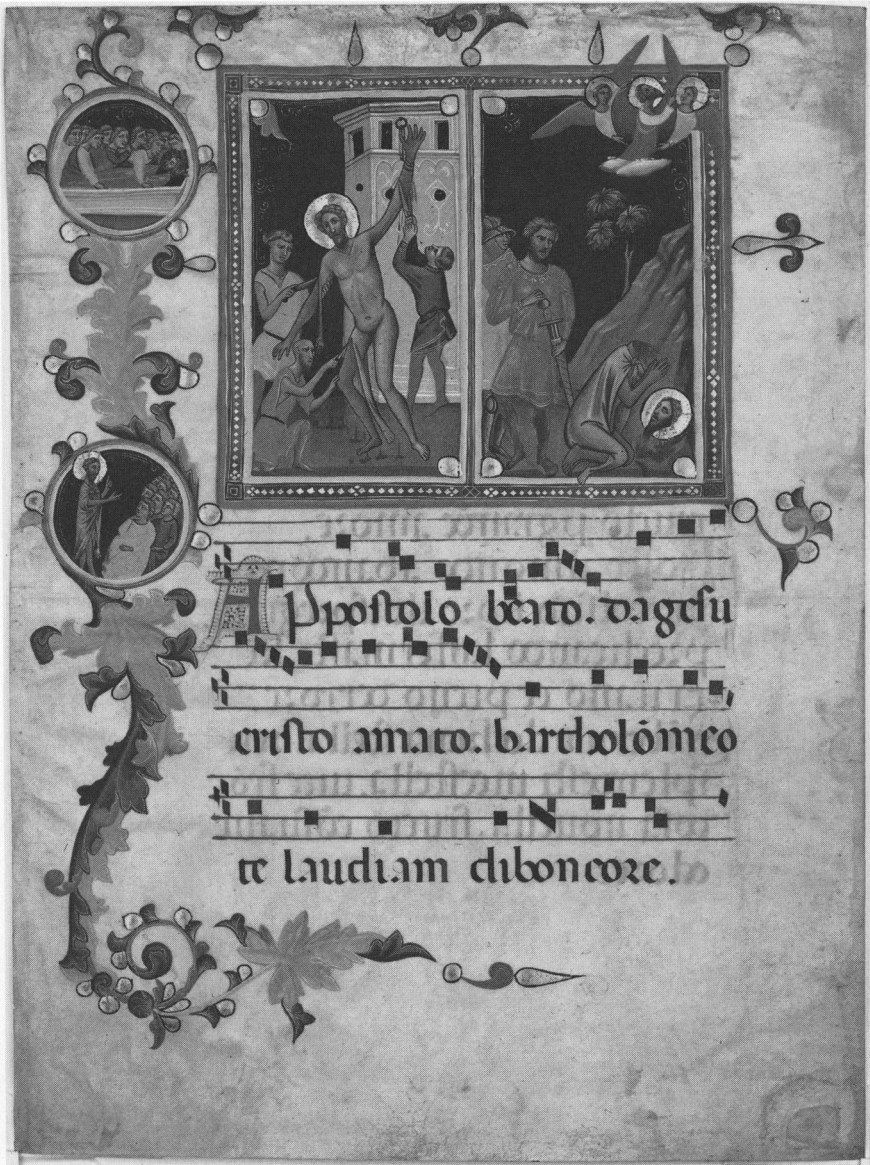 APpostolo beato. da gesu
cristo amato. bartholōmeo
te laudiam di bon core.